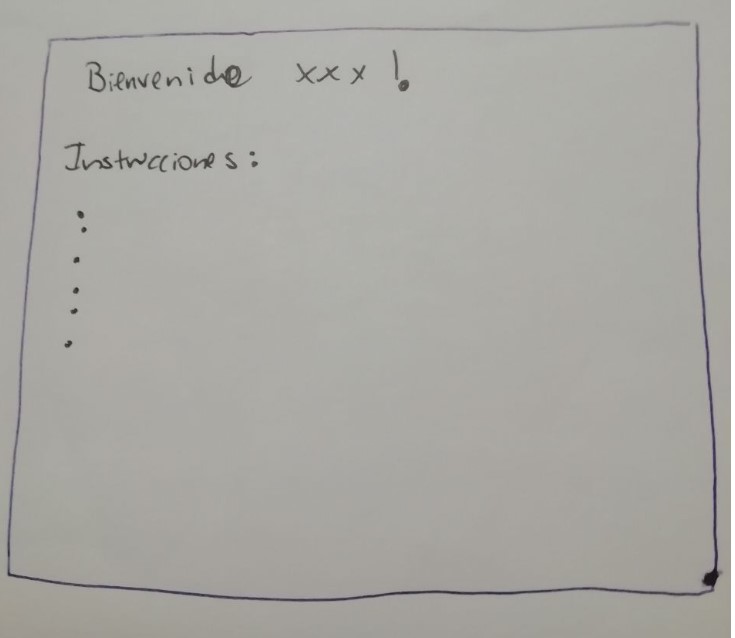 Bienvenido xxx!
Instrucciones: